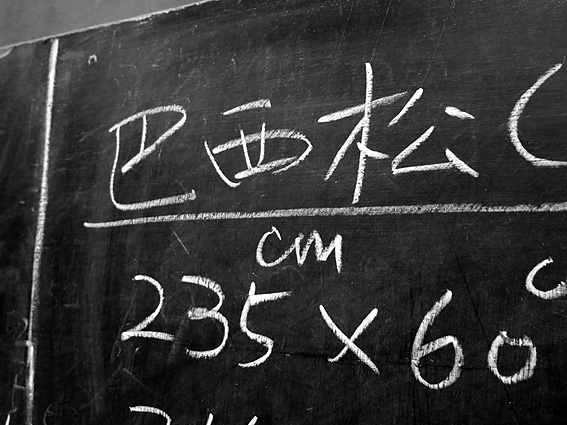 巴西松(
cm
235×60